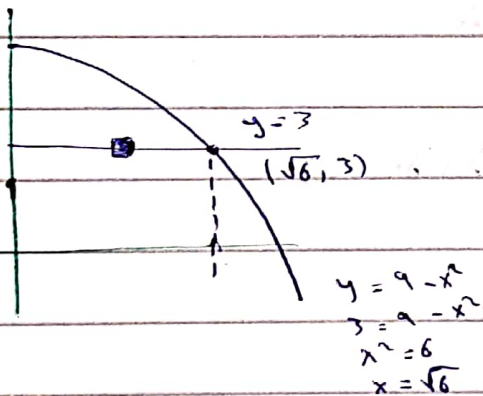 y = 3
(√6, 3)
y = 9 - x²
3 = 9 - x²
x² = 6
x = √6